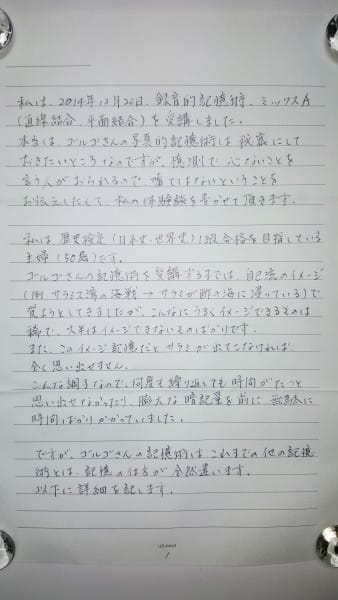 私は、2014年12月20日、録音的記憶術、ミックスA
(直線結合、平面結合)を受講しました。
本当は、ゴルゴさんの写真的記憶術は秘密にして
おきたいところなのですが、憶測で心ないことを
言う人がおられるので、嘘ではないということを
お伝えしたくて、私の体験談を書かせて頂きます。
私は歴史検定(日本史・世界史)1級合格を目指している
主婦(50歳)です。
ゴルゴさんの記憶術を受講するまでは、自己流のイメージ
(例 サラミス湾の海戦→サラミが酢の海に浸っている)で
覚えようとしてきましたが、こんなにうまくイメージできるものは
稀で、大半はイメージできないものばかりです。
また、このイメージ記憶だとサラミが出てこなければ、
全く思い出せません。
こんな調子なので、何度も繰り返しても時間がたつと
思い出せなかったり、膨大な暗記量を前に無駄に
時間ばかりかかっていました。
ですが、ゴルゴさんの記憶術は、これまでの他の記憶
術とは、記憶の仕方が全然違います。
以下に詳細を記します。
1